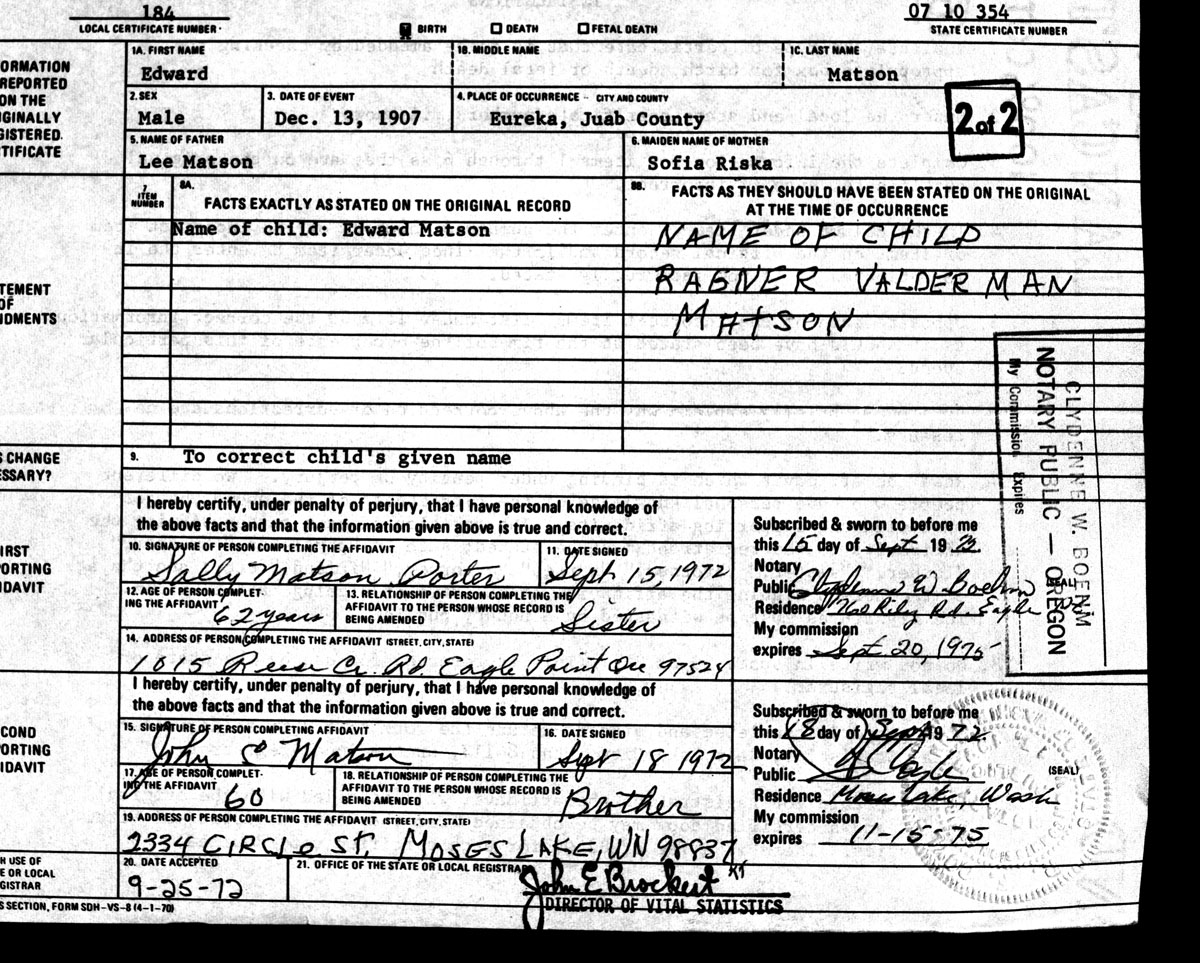 184
07 10 354
LOCAL CERTIFICATE NUMBER
BIRTH DEATH FETAL DEATH
STATE CERTIFICATE NUMBER
1A. FIRST NAME 1B. MIDDLE NAME 1C. LAST NAME
Edward Matson
ORMATION
REPORTED
ON THE
IGINALLY
GISTERED
TIFICATE
2. SEX 3. DATE OF EVENT 4. PLACE OF OCCURRENCE - CITY AND COUNTY
Male Dec. 13, 1907 Eureka, Juab County
2 of 2
5. NAME OF FATHER 6. MAIDEN NAME OF MOTHER
Lee Matson Sofia Riska
7. ITEM NUMBER
8A.
FACTS EXACTLY AS STATED ON THE ORIGINAL RECORD
8B. FACTS AS THEY SHOULD HAVE BEEN STATED ON THE ORIGINAL
AT THE TIME OF OCCURRENCE
Name of child: Edward Matson
NAME OF CHILD
RAGNER VALDERMAN
MATSON
TEMENT
OF
NDMENTS
CLYDENNE W. BOEHM
NOTARY PUBLIC — OREGON
My Commission Expires
S CHANGE
SSARY?
9. To correct child's given name
I hereby certify, under penalty of perjury, that I have personal knowledge of
the above facts and that the information given above is true and correct.
IRST
PORTING
IDAVIT
10. SIGNATURE OF PERSON COMPLETING THE AFFIDAVIT 11. DATE SIGNED
Sally Matson Porter Sept 15, 1972
12. AGE OF PERSON COMPLET-
ING THE AFFIDAVIT
62 years
13. RELATIONSHIP OF PERSON COMPLETING THE
AFFIDAVIT TO THE PERSON WHOSE RECORD IS
BEING AMENDED
Sister
14. ADDRESS OF PERSON COMPLETING THE AFFIDAVIT (STREET, CITY, STATE)
1015 Reese Cr. Rd. Eagle Point Ore 97524
Subscribed & sworn to before me
this 15 day of Sept 19
Notary
Public Clydenne W. Boehm (SEAL)
Residence 760 Riley Rd. Eagle
My commission
expires Sept. 20, 1975
I hereby certify, under penalty of perjury, that I have personal knowledge of
the above facts and that the information given above is true and correct.
COND
PORTING
IDAVIT
15. SIGNATURE OF PERSON COMPLETING AFFIDAVIT 16. DATE SIGNED
John S Matson Sept 18 1972
17. AGE OF PERSON COMPLET-
ING THE AFFIDAVIT
60
18. RELATIONSHIP OF PERSON COMPLETING THE
AFFIDAVIT TO THE PERSON WHOSE RECORD IS
BEING AMENDED
Brother
19. ADDRESS OF PERSON COMPLETING THE AFFIDAVIT (STREET, CITY, STATE)
2334 CIRCLE ST, MOSES LAKE, WN 98837
Subscribed & sworn to before me
this 18 day of Sept 1972
Notary
Public (SEAL)
Residence Moses Lake, Wash
My commission
expires 11-15-75
H USE OF
E OR LOCAL
GISTRAR
20. DATE ACCEPTED 21. OFFICE OF THE STATE OR LOCAL REGISTRAR
9-25-72 John E Brockert
DIRECTOR OF VITAL STATISTICS
S SECTION, FORM SDH-VS-8 (4-1-70)